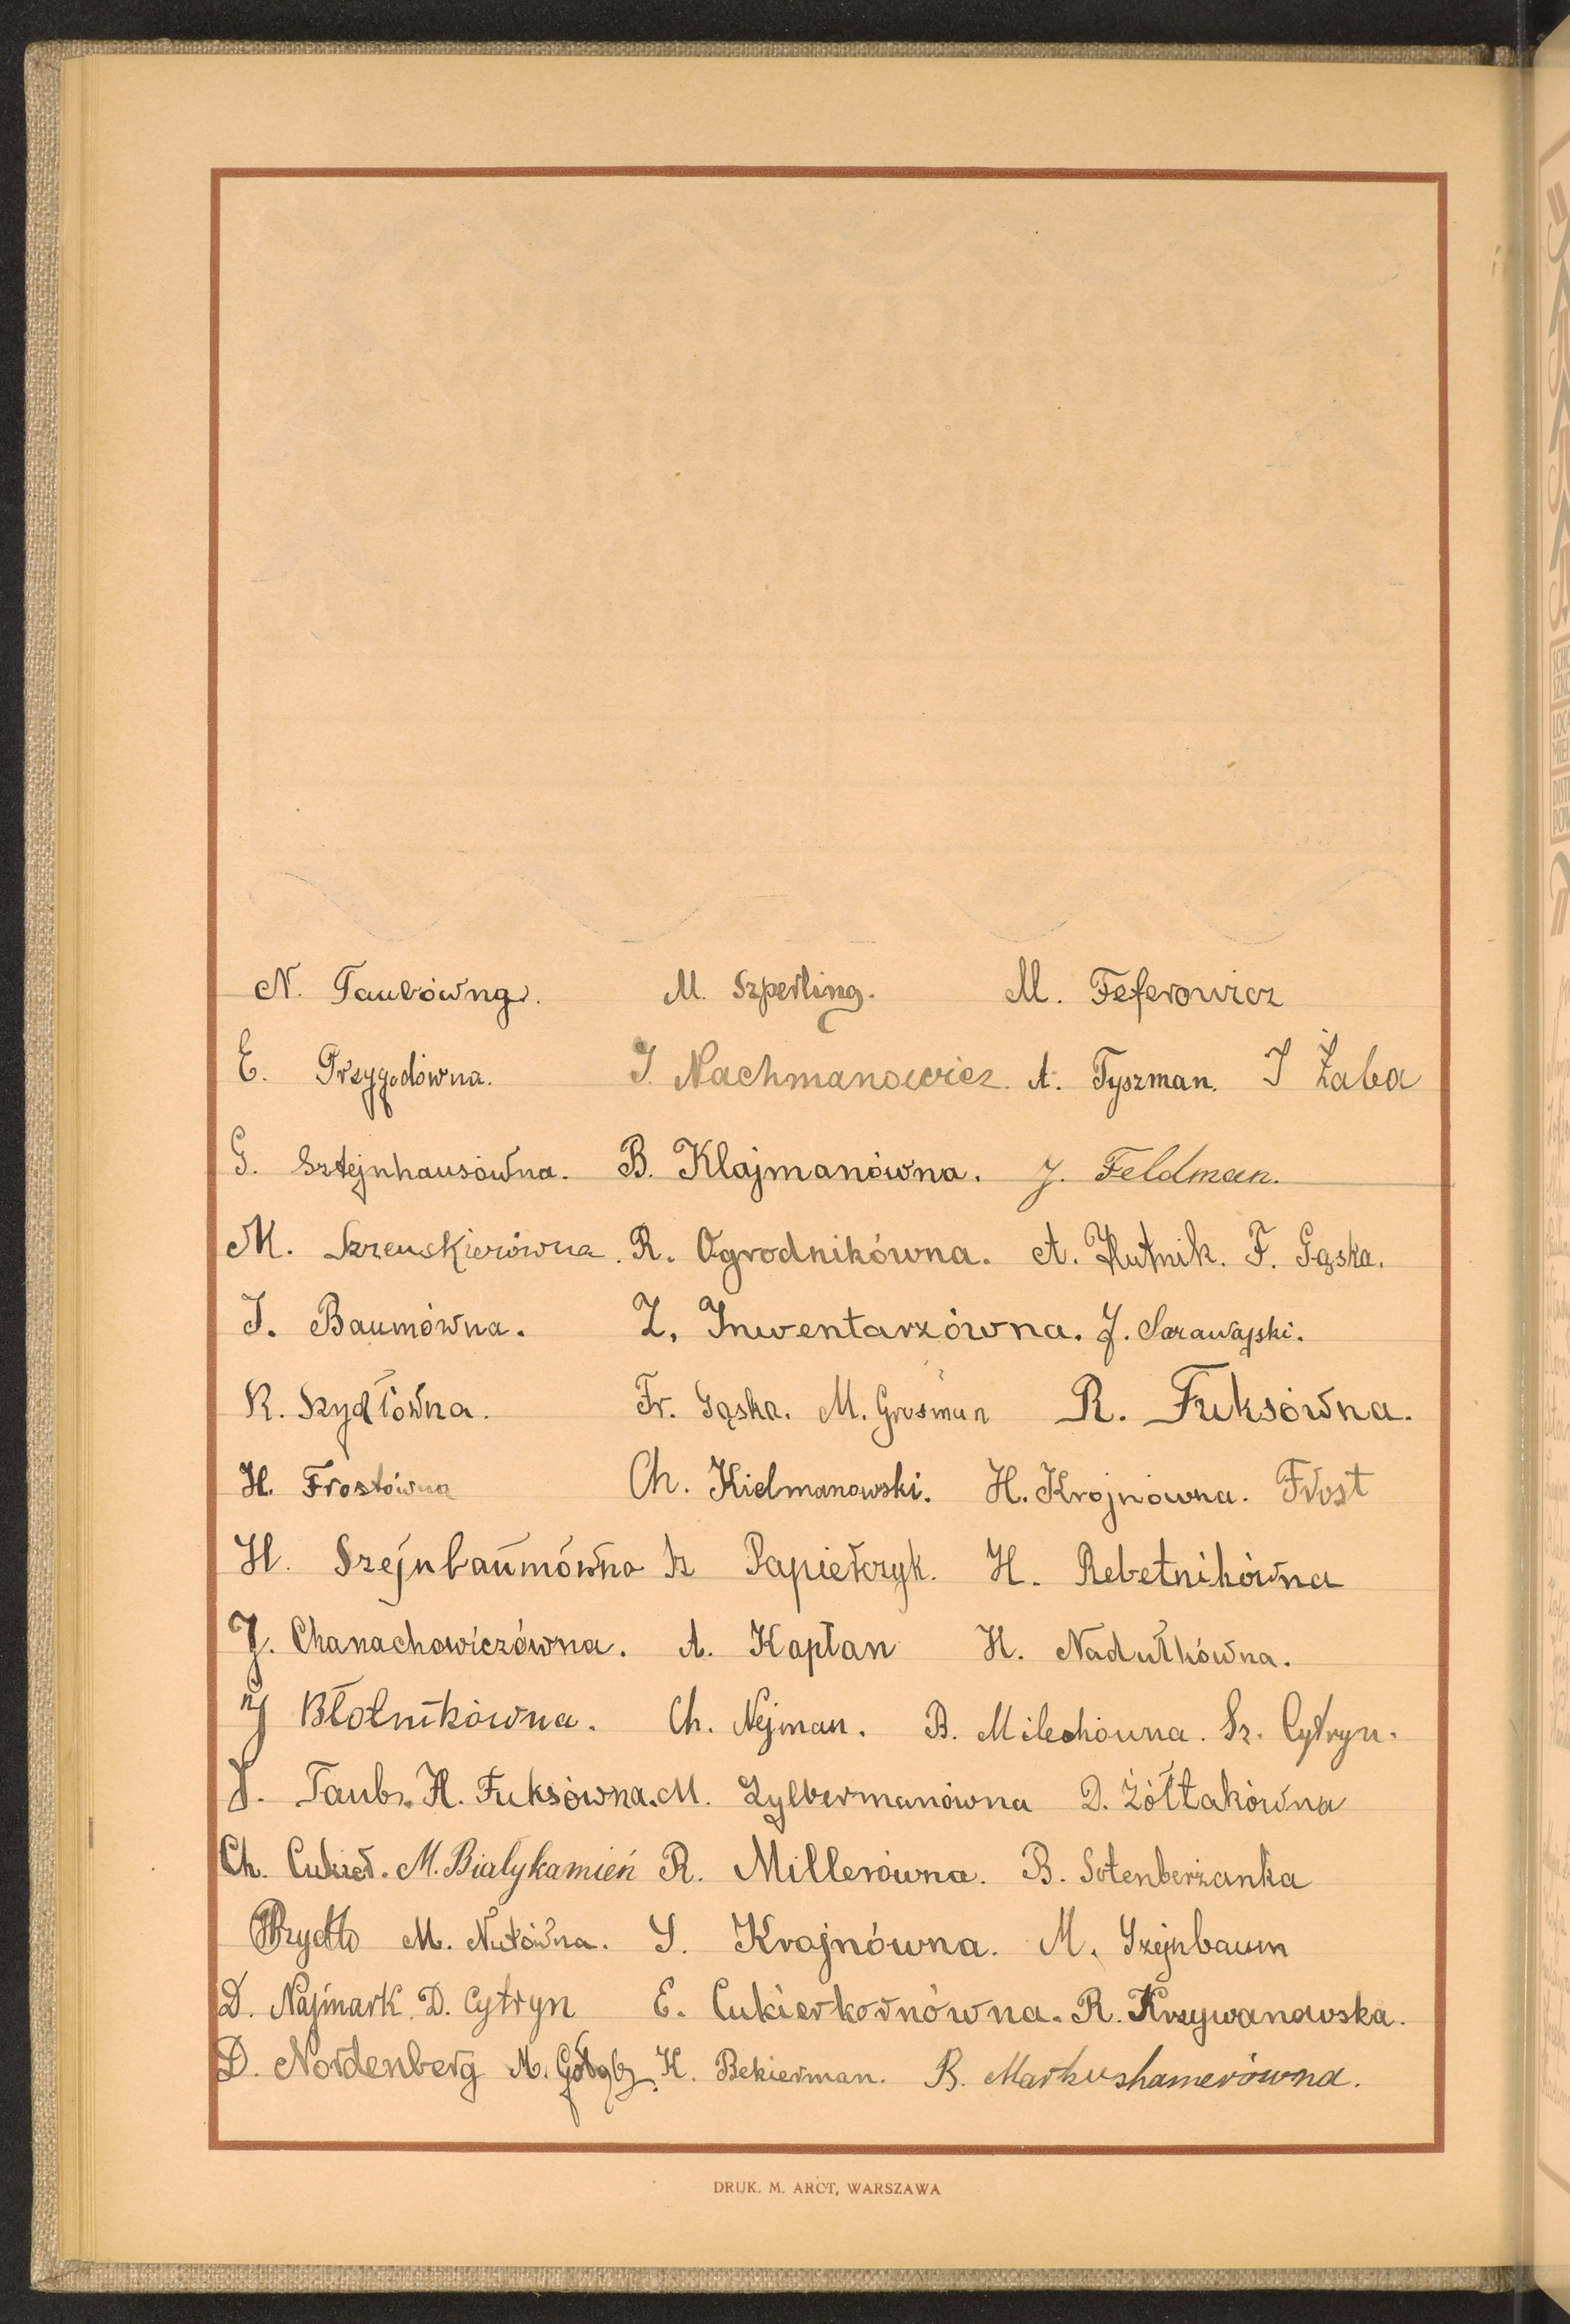 N. Taubówna. M. Szperling. M. Feferowicz
E. Przygodówna. I. Nachmanowicz. A. Tyszman. I Żaba
G. Sztejnhausówna. B. Klajmanówna. J. Feldman.
M. Szrenskierówna. R. Ogrodnikówna. A. Hutnik. F. Gąska.
I. Baumówna. Z. Inwentarzówna. J. Sarawajski.
R. Szydłówna. Fr. Gąska. M. Grosman R. Fuksówna.
H. Frostówna Ch. Kielmanowski. H. Krojnówna. Frost
H. Szejnbaumówna Sz Papierczyk. H. Rebetnikówna
J. Chanachowiczówna. A. Kapłan H. Nadułkówna.
J Błotnikówna. Ch. Nejman. B. Milechówna. Sz. Cytryn.
J. Taub. H. Fuksówna. M. Zylbermanówna D. Żółtakówna
Ch. Cukier. M. Białykamień R. Millerówna. B. Sotenberżanka
M. Nutówna. S. Krajnówna. M. Szejnbaum
D. Najmark. D. Cytryn E. Cukierkornówna. R. Krzywanowska.
D. Nordenberg M. Gołąb. H. Bekierman. B. Markushamerówna.
DRUK. M. ARCT, WARSZAWA